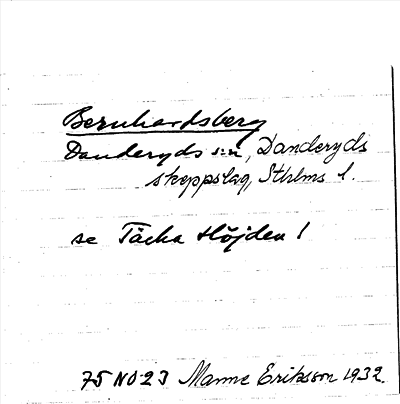 Bernhardsberg
Danderyds s:n, Danderyds
skeppslag, Sthlms l.
se Täcka Höjden!
75 NO 23 Manne Eriksson 1932.